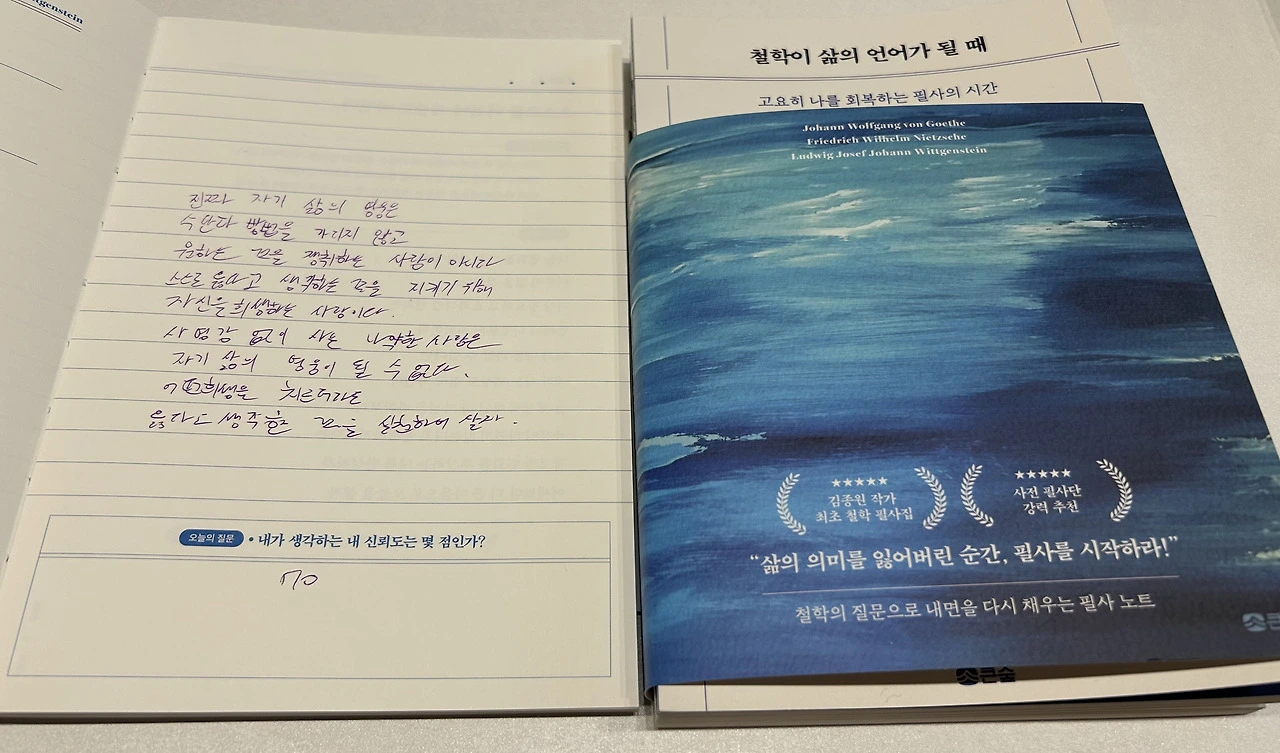 ttgenstein
진짜 자기 삶의 영웅은
수단과 방법을 가리지 않고
원하는 것을 쟁취하는 사람이 아니라
스스로 옳다고 생각하는 것을 지키기 위해
자신을 희생하는 사람이다.
사명감 없이 사는 나약한 사람은
자기 삶의 영웅이 될 수 없다.
희생을 치르더라도
옳다고 생각한 것을 실천하며 살라.
오늘의 질문 • 내가 생각하는 내 신뢰도는 몇 점인가?
철학이 삶의 언어가 될 때
고요히 나를 회복하는 필사의 시간
Johann Wolfgang von Goethe
Friedrich Wilhelm Nietzsche
Ludwig Josef Johann Wittgenstein
★★★★★
김종원 작가
최초 철학 필사집
★★★★★
사전 필사단
강력 추천
“삶의 의미를 잃어버린 순간, 필사를 시작하라!”
철학의 질문으로 내면을 다시 채우는 필사 노트
큰숲